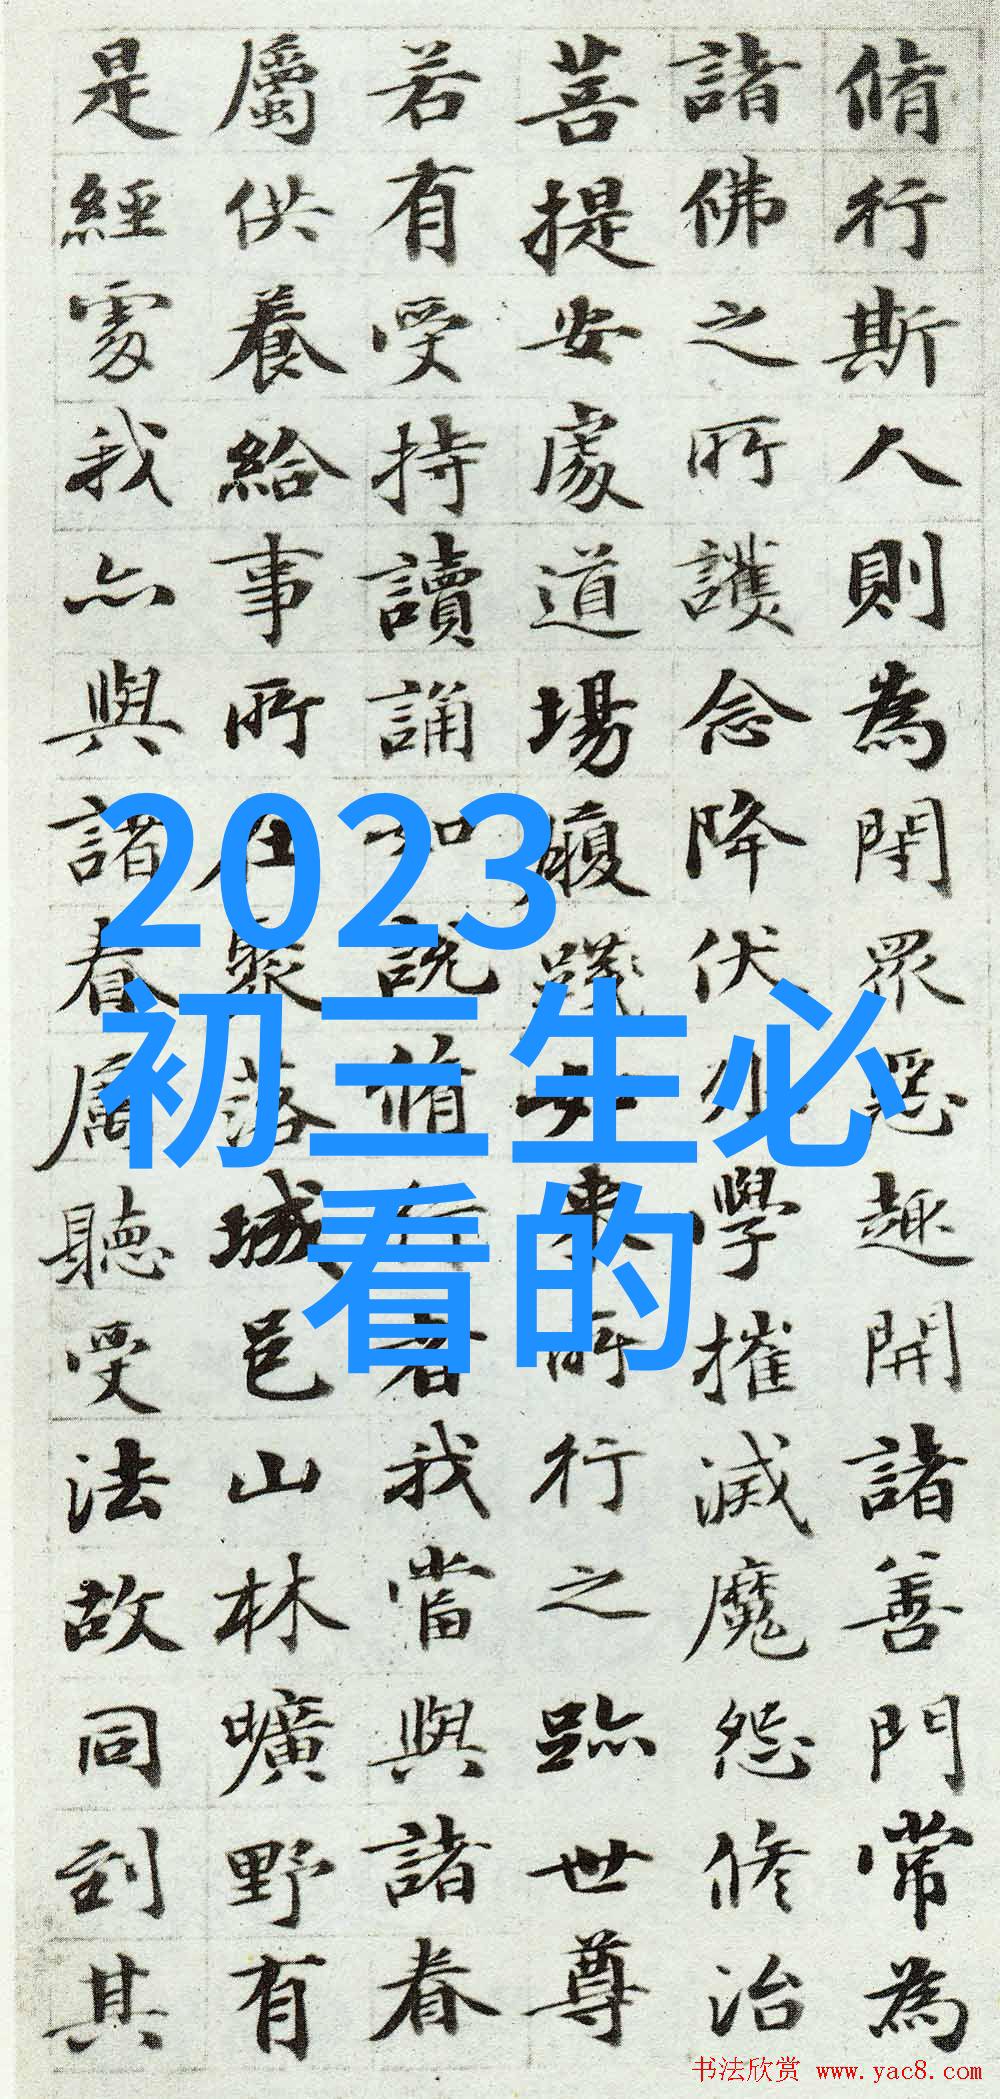 脩行斯人則為閇眾惡趣開諸善門常為
諸佛之所護念降伏外學摧滅魔怨修治
菩提安處道場履踐如來所行之跡世尊
若有受持讀誦如說脩行者我當與諸眷
屬供養給事所在聚落城邑山林曠野有
是經處我亦與諸眷屬聽受法故同到其
2023
初三生必
看的
书法欣赏 www.yac8.com